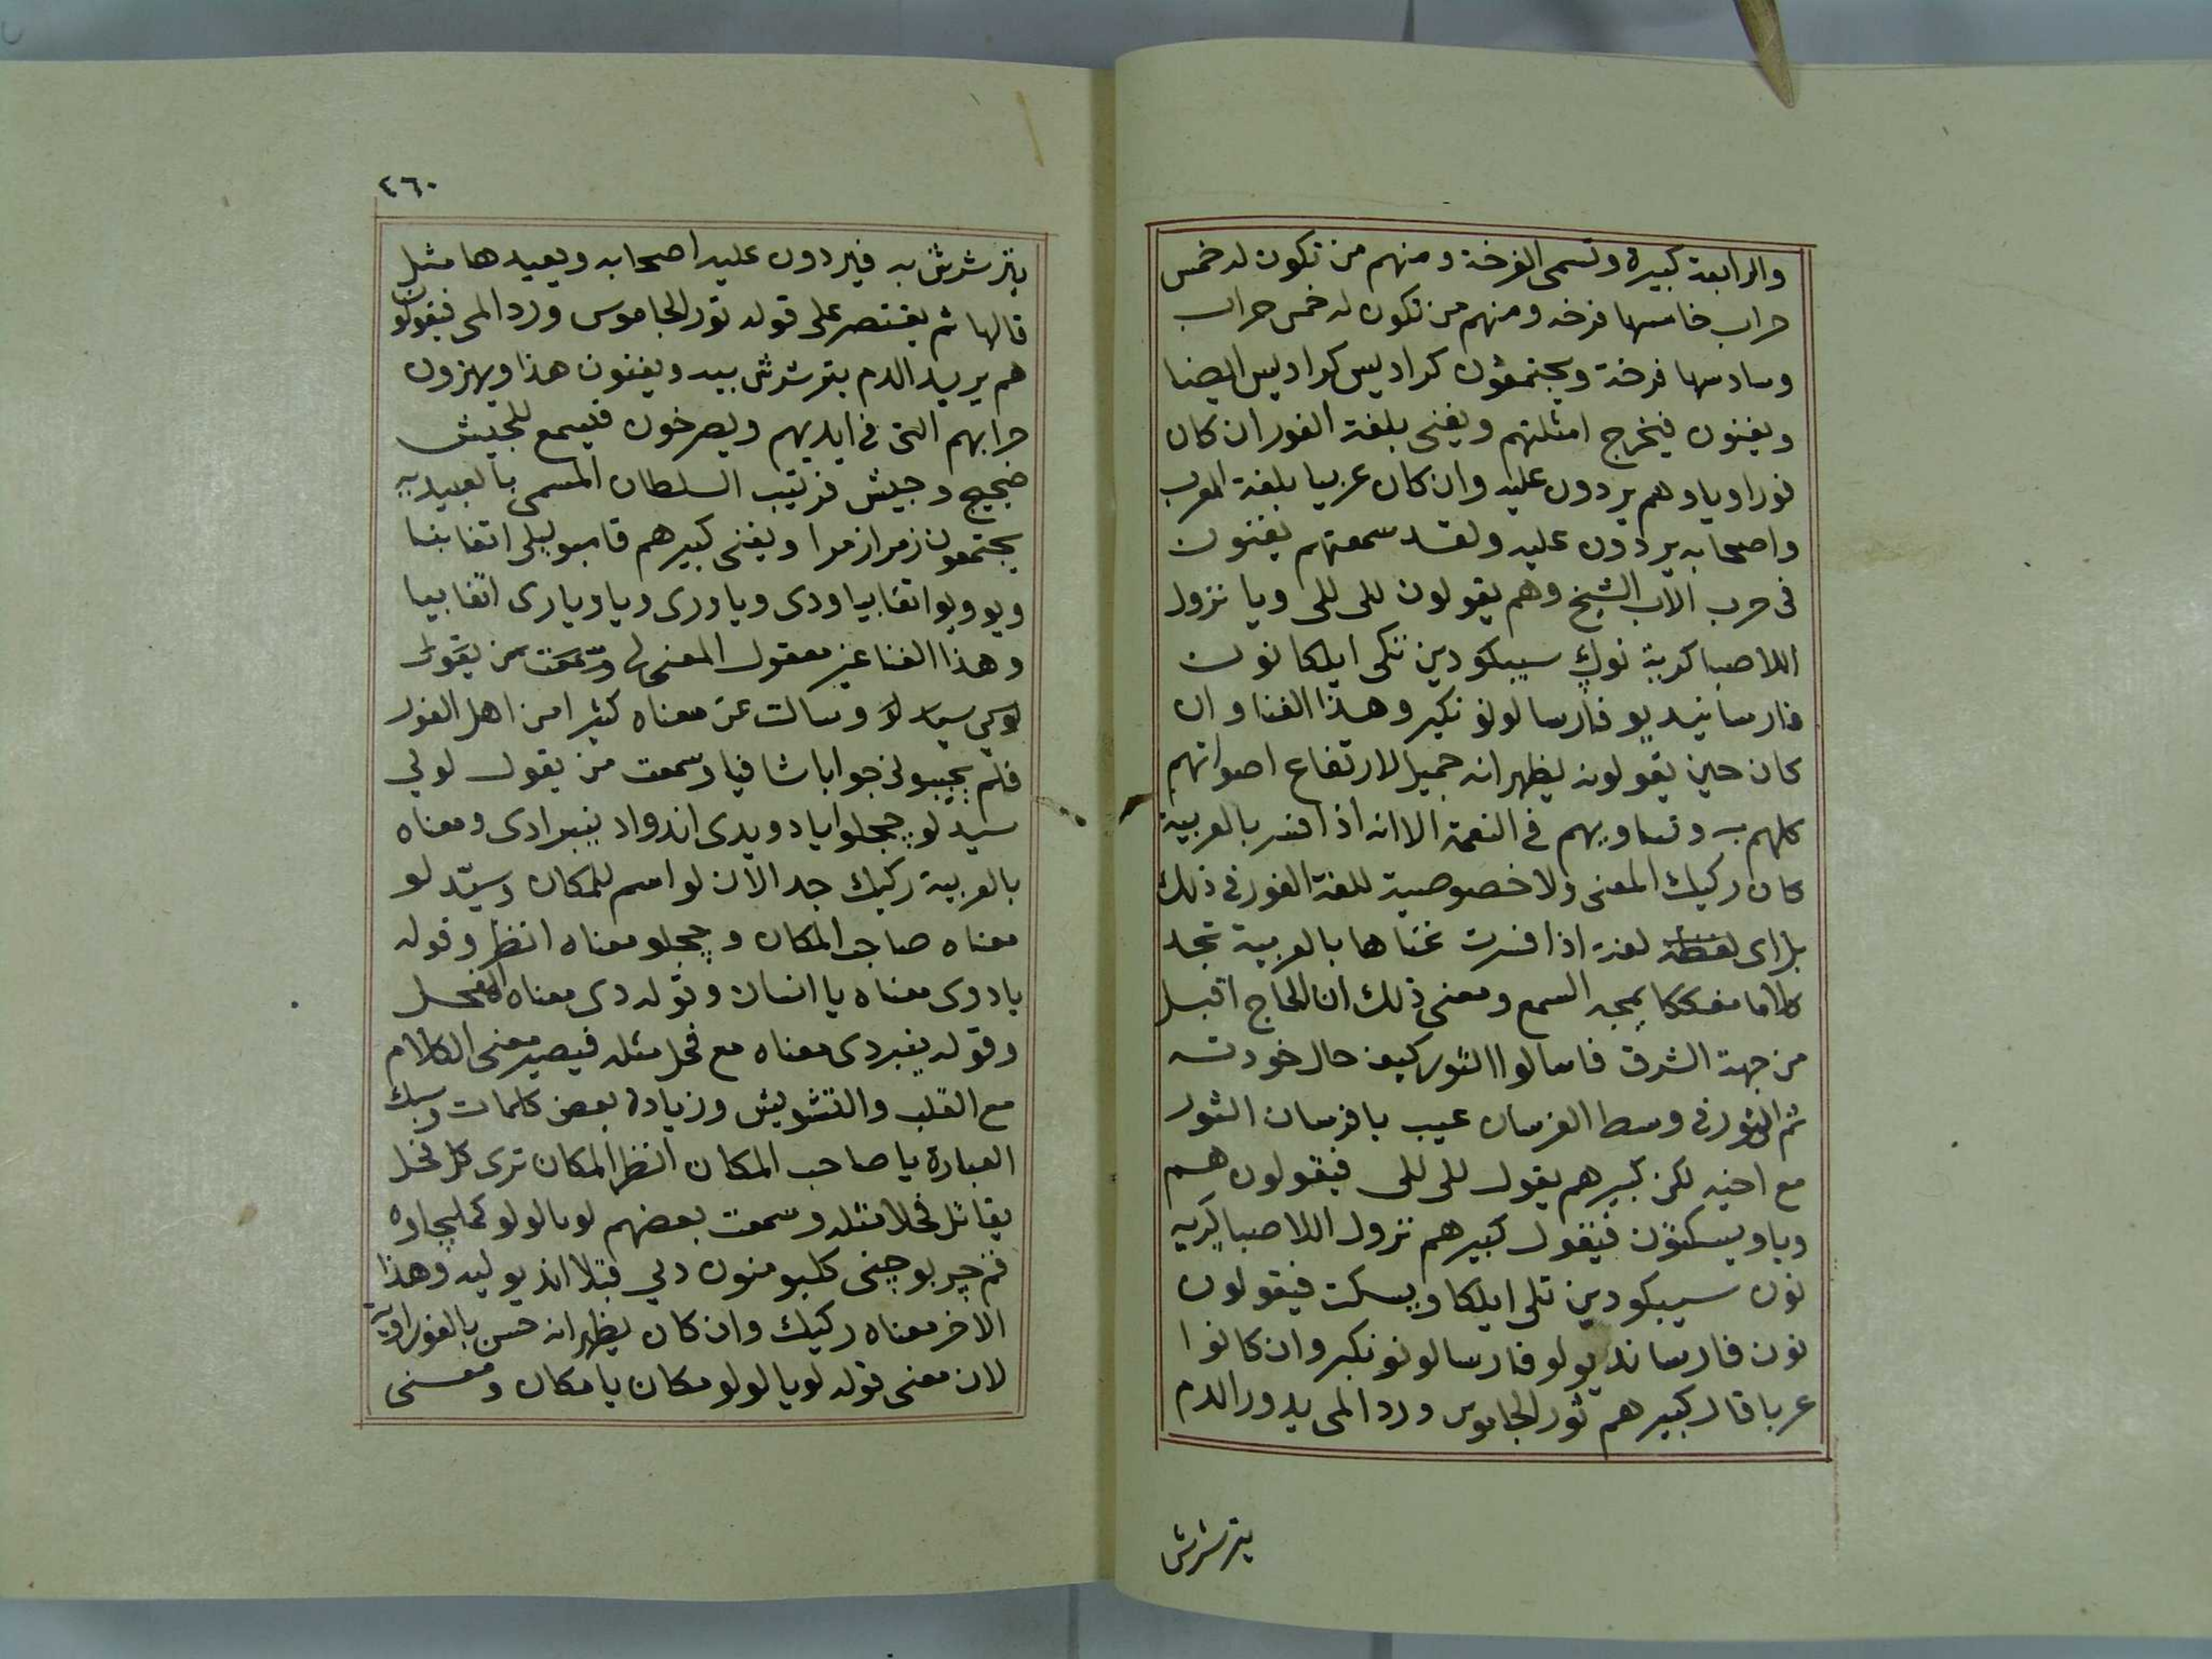 والرابعة كبيرة وتسمى الفرخة ومنهم من تكون له خمس
حراب خامسها فرخه ومنهم من تكون له خمس حراب
وسادسها فرخة ويجتمعون كراديس كراديس ايضا
ويغنون فيخرج امثلتهم ويغنى بلغة الفور ان كان
فوراويا وهم يردون عليه وان كان عربيا بلغة العرب
واصحابه يردون عليه ولقد سمعتهم يغنون
فى حرب الاب الشيخ وهم يقولون للى للى ويا نزول
اللاصبا كرية نون سيبكو دين تكى ايلكا نون
فارسا نيديو فارسا لونو نكير وهذا الغنا وان
كان حين يقولونه يظهر انه جميل لارتفاع اصواتهم
كلهم به وتساويهم فى النغمة الا انه اذا فسر بالعربية
كان ركيك المعنى ولا خصوصية للغة الفور فى ذلك
بل اى لغة اذا فسرت غناها بالعربية تجد
كلاما مفككا يمجه السمع ومعنى ذلك ان الحاج اقبل
من جهة الشرق فاسالوا الثور كيف حال خودته
ثم الثور فى وسط الفرسان عيب يا فرسان الثور
مع اخيه لكن كبيرهم يقول للى للى فيقولون هم
ويا ويسكتون فيقول كبيرهم نزول اللاصبا كريه
نون سيبكو دين تلى ايلكا ويسكت فيقولون
نون فارسا نديو لو فارسا لونو نكير وان كانوا
عربا قال كبيرهم ثور الجاموس ورد المى يدور الدم
يترشرش
٢٦٠
يترشرش به فيردون عليه اصحابه ويعيدها مثل
قالها ثم يقتصر على قوله ثور الجاموس ورد المى فيقولون
هم يريد الدم يترشرش بيه ويغنون هذا ويهزون
حرابهم التى فى ايديهم ويصرخون فيسمع للجيش
ضجيج وجيش قرتيب السلطان المسمى بالعبيديه
يجتمعون زمرا زمرا ويغنى كبيرهم قاسبو ليلى اتقا بنا
ويو ويوا اتقا بيا ودى ويا ورى ويا ويارى اتقا بيا
وهذا الغنا غير معقول المعنى لى وسمعت من يقول
لو كي سيد لو وسالت عن معناه كثيرا من اهل الفور
فلم يجيبونى جوابا شافيا وسمعت من يقول لو لى
سيد لو ججلوا يا دويدى اندواد ينبرادى ومعناه
بالعربية ركيك جدا لان لو اسم للمكان وسيد لو
معناه صاحب المكان و ججلو معناه انظر وقوله
يا دوى معناه يا انسان وقوله دى معناه الفحل
وقوله ينبردى معناه مع فحل مثله فيصير معنى الكلام
مع القلب والتشويش وزيادة بعض كلمات وسبك
العبارة يا صاحب المكان انظر المكان ترى كل فحل
يقاتل فحلا مثله وسمعت بعضهم لو يا لو لو كمليجاوه
فم جر بو جنى كلبو منون دلي قبتلا انديو ليه وهذا
الاخر معناه ركيك وان كان يظهر انه حسن بالفوراوية
لان معنى قوله لو يا لو لو مكان يا مكان ومعنى